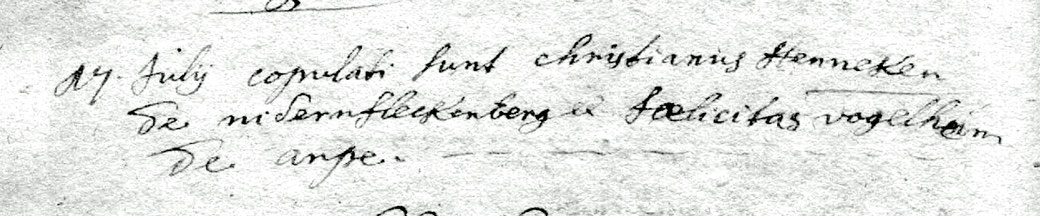 17. Julij copulati sunt christianus Henneken
de nidernfleckenberg et fœlicitas vogelheim
de arpe.